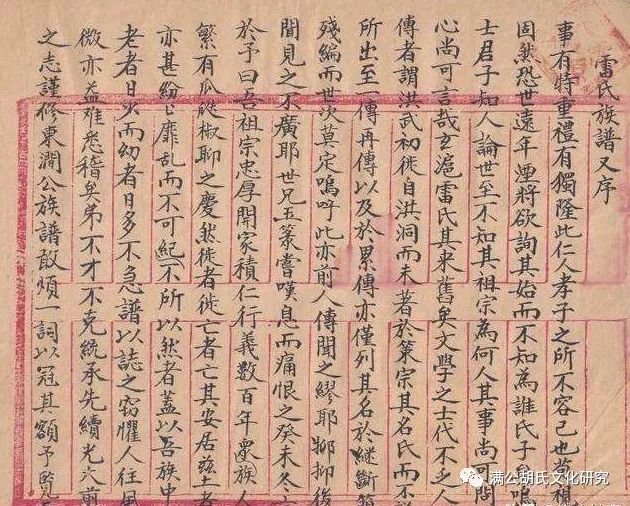 雷氏族譜又序
事有特重禮有獨隆此仁人孝子之所不容已也嘗相
固然恐世遠年湮將欲詢其始而不知為誰氏子嗚
士君子知人論世至不知其祖宗為何人其事尚可問
心尚可言哉玄滬雷氏其來舊矣文學之士代不乏人
傳者謂洪武初徙自洪洞而未著於策宗其名氏而不
所出至一傳再傳以及於累傳亦僅列其名於繼斷
殘編而世次莫定嗚呼此亦前人傳聞之繆耶抑後
聞見之不廣耶世兄五篆嘗嘆息而痛恨之癸未冬
於予曰吾祖宗忠厚開家積仁行義數百年眾族人
繁有瓜瓞椒聊之慶然徙者徙亡者亡其安居茲土者
亦甚紛紛靡乱而不可紀不所以然者蓋以吾族中
老者日火而幼者日多不急譜以誌之窃懼人往風
微亦益难悉稽矣弟不才不克統承先續光六前
之志謹修東澗公族譜敢煩一詞以冠其額予覧
满公胡氏文化研究